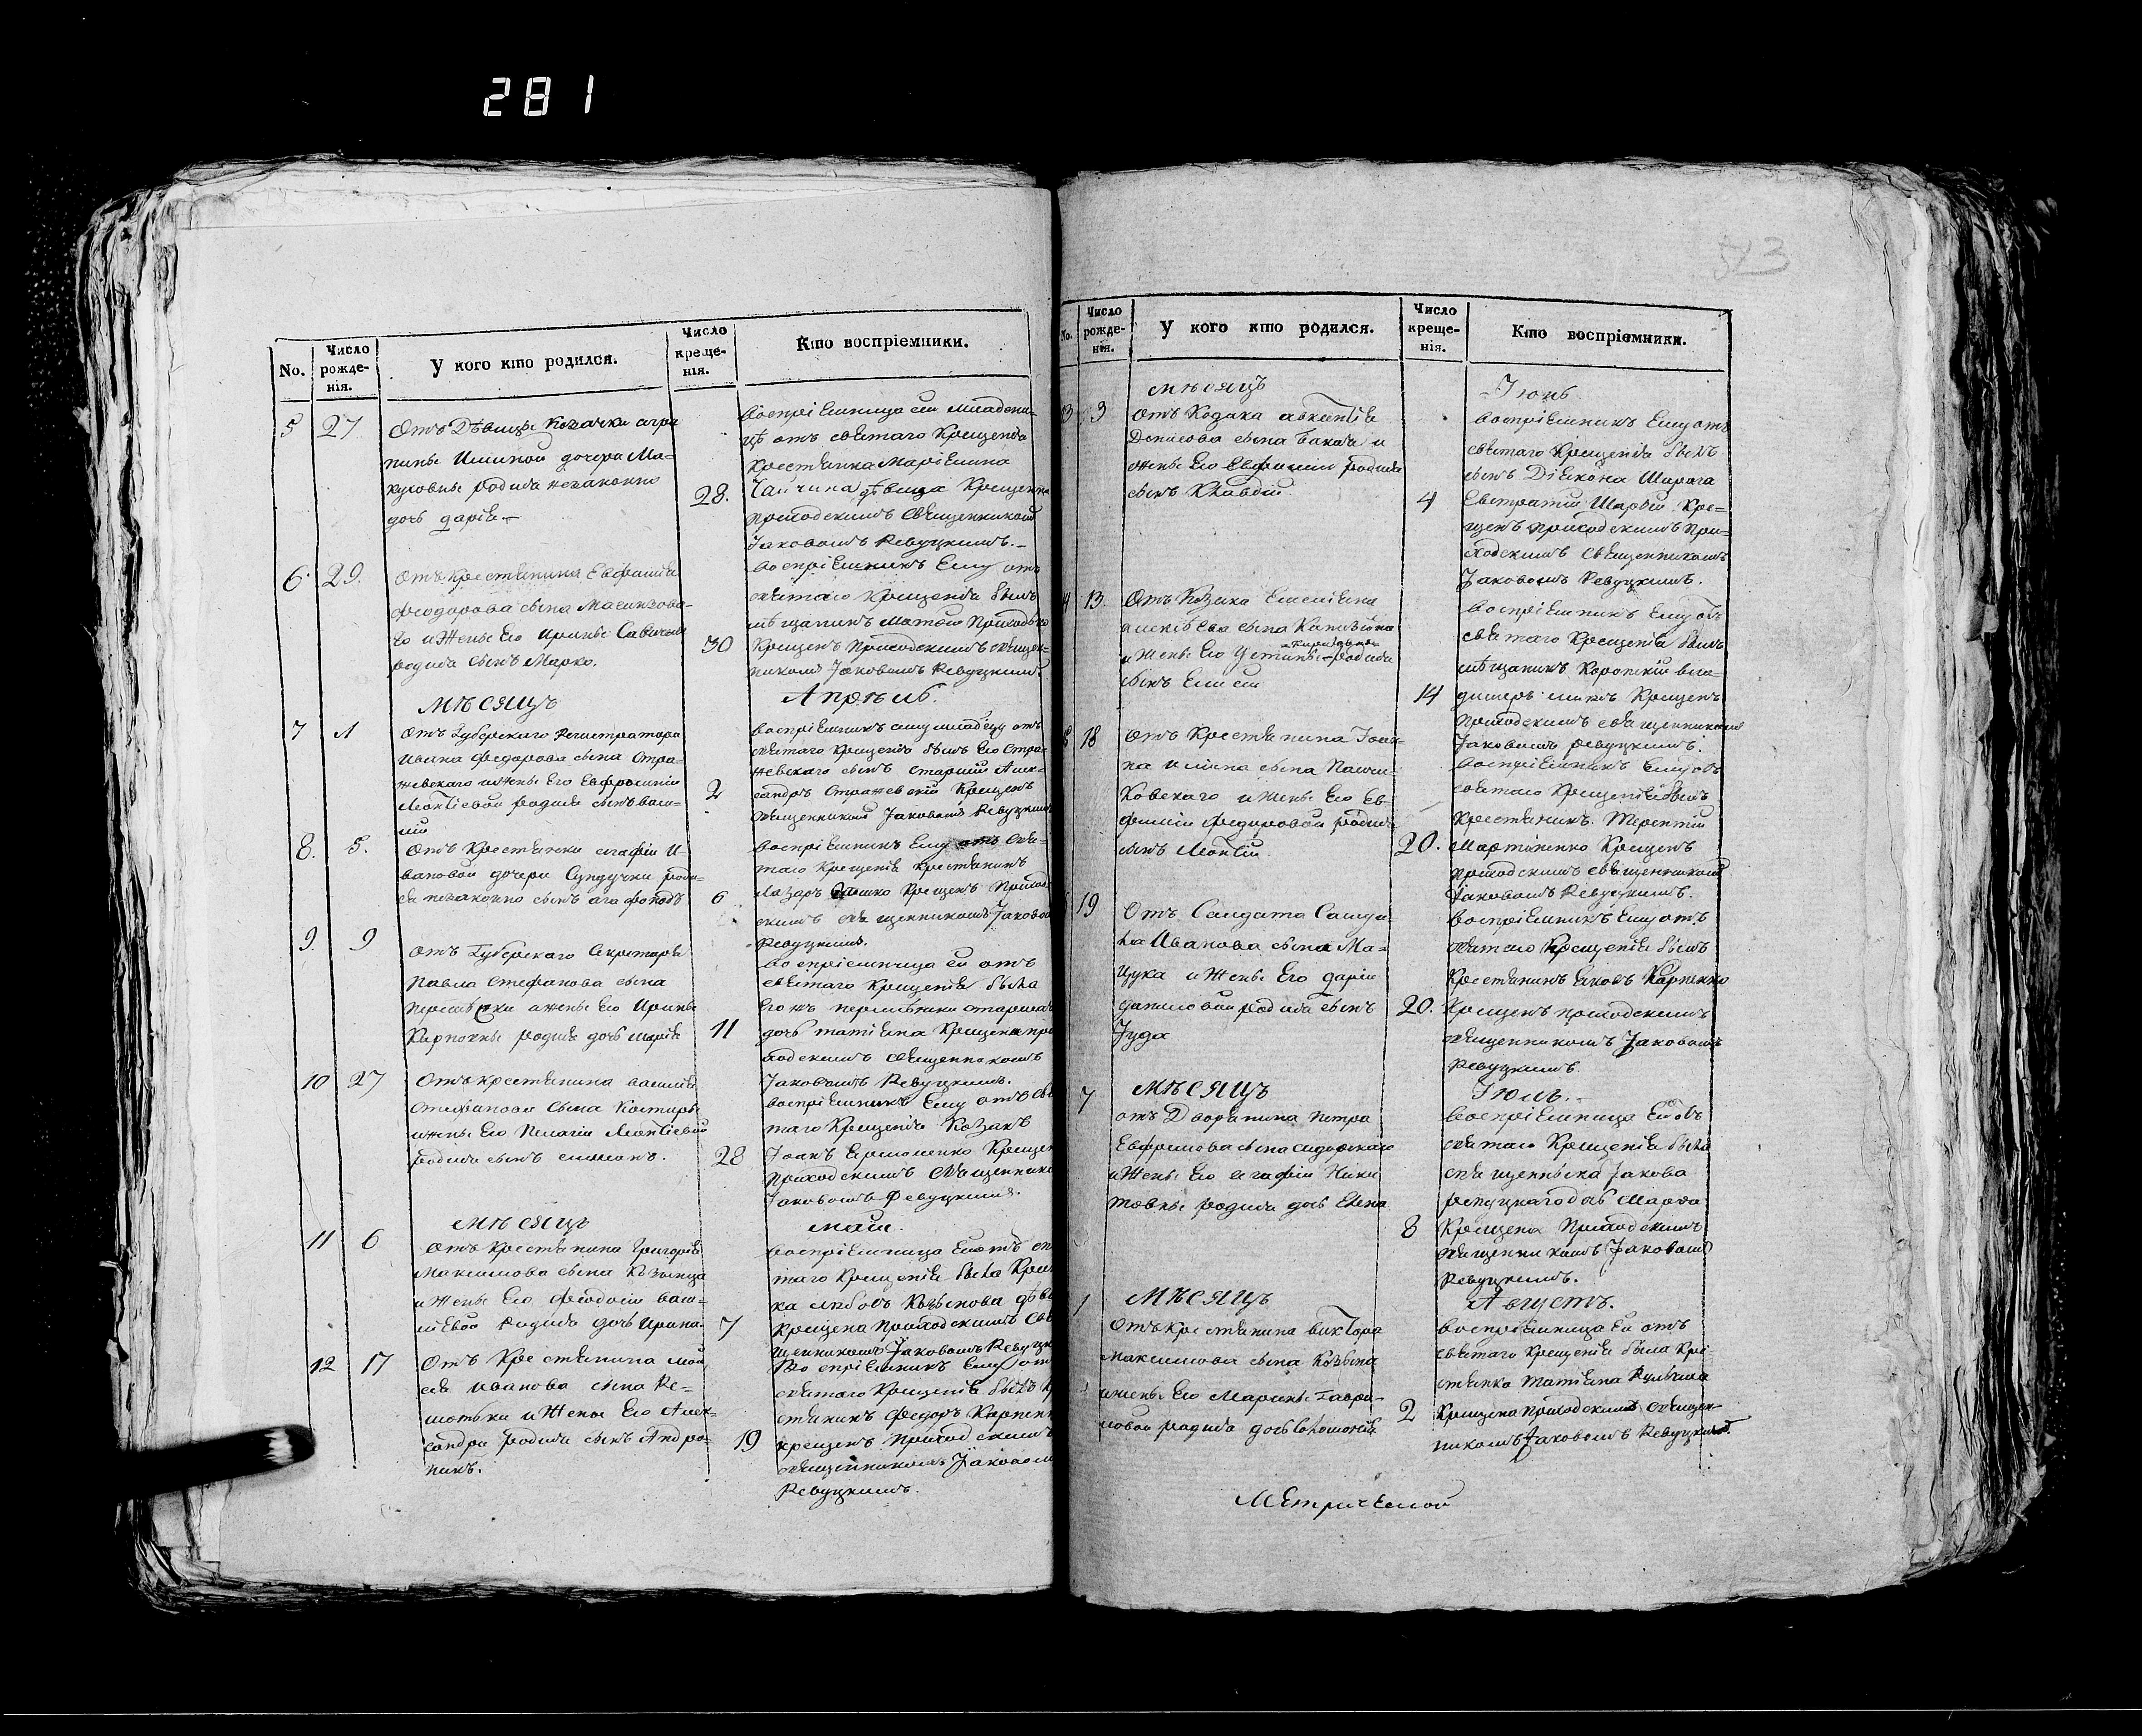 281
523
No.
Число рожде-нія.
У кого кто родился.
Число креще-нія.
Кто воспріемники.
5 27
Отъ Дѣвицы Козачки агра
пины Илиной дочери Ма-
родила незаконно
дочь дарія
воспріемница ей младени-
цѣ отъ святаго Крещенія
Крестянка Маріямна
28.
дѣвица Крещенна
приходскимъ Священникомъ
Іаковомъ Ревуцкимъ.
6. 29.
отъ Крестянина Евфимія
Феодорова сына
го и Жены Его Ирины Савичевы
родила сынъ Марко.
воспріемникъ Ему отъ
святаго Крещенія былъ
мѣщанинъ Матвій Приходко
30
Крещенъ Приходскимъ священ-
никомъ Іаковомъ Ревуцкимъ.
Мѣсяцъ
Апрѣль.
7 1
отъ Губерского Регистратора
Ивана Федорова сына Стра-
жевскаго и Жены Его Евфросиніи
Леонтіевой родила сынъ васи-
лій
воспріемникъ ему млад҃цу отъ
святаго крещенія былъ Его Стра-
жевскаго сынъ старшій Алек-
2
сандръ Стражевскій Крещенъ
священникомъ Іаковомъ Ревуцкимъ
8. 5.
отъ Крестянки агафіи И-
вановой дочери Сундучки роди-
ся незаконно сынъ агафоподъ
воспріемникъ Ему отъ свя-
таго Крещенія крестянинъ
6
Лазарь крещенъ Приход-
скимъ священникомъ Іаковом
Ревуцкимъ.
9. 9
отъ Губерского Секретаря
Павла Стефанова сына
и жены Его Ирины
Карповны родила дочь марія
воспріемница ей отъ
святаго Крещенія была
старшая
11
дочь татіяна Крещена при
ходскимъ священникомъ
Іаковомъ Ревуцкимъ.
10 27
Отъ крестянина василія
стефанова сына Костыры
и жены Его Пелагіи Леонтіевой
родила сынъ симеонъ.
воспріемникъ Ему отъ свя
таго Крещенія Козакъ
28
Іоанъ Ермоленко Крещен
приходскимъ Священнико
Іаковомъ Ревуцкимъ.
Мѣсяцъ
маій.
11 6
отъ Крестянина Григорія
Максимова сына Козьмца
и Жены Его Феодосіи васи-
ліевой Родила дочь Ирина.
воспріемница Ей отъ свя
таго Крещенія была Крест
ка любовь
7
Крещена Приходскимъ Свя
щенникомъ Іаковомъ Ревуцк
12 17
Отъ Крестянина мой
сея Иванова сына Ре-
шотьки и Жены Его Алек-
сандри родила сынъ Андро-
никъ.
Воспріемникъ Ему от
святаго Крещенія былъ кр
стянинъ Федоръ Карпенк
19
крещенъ Приходскимъ
священникомъ Іаковом
Ревуцкимъ.
No.
Число рожде-нія.
У кого кто родился.
Число креще-нія.
Кто воспріемники.
мѣсяцъ
Іюнь.
13 3
отъ Козака авксентія
Денисова сына и
жены Его Евфиміи родила
сынъ Клавдій
воспріемникъ Ему отъ
святаго Крещенія былъ
сынъ Діякона Шараго
4
Евстратій Шарый Кре-
щенъ приходскимъ При-
ходскимъ священникомъ
Іаковомъ Ревуцкимъ.
4 13
Отъ Козака Емеліяна
алексіева сына
и Жены Его родила
сынъ Елисей
воспріемникъ Ему отъ
святаго Крещенія былъ
мѣщанинъ Коропскій вла-
14
димеръ Крещенъ
приходскимъ священникомъ
Іаковомъ Ревуцкимъ.
18
отъ Крестянина Іоан-
на илина сына
Ковскаго и Жены Его Ев-
фиміи Федоровой родила
сынъ Леонтій
воспріемникъ Ему отъ
святаго Крещенія былъ
Крестянинъ Терентій
20.
Мартиненко Крещенъ
приходскимъ священникомъ
Іаковомъ Ревуцкимъ.
19
Отъ Салдата
Иванова сына Ма-
цука и Жены Его даріи
даниловой родила сынъ
Іуда
воспріемникъ Ему отъ
святаго Крещенія былъ
Крестянинъ Яковъ Карпенко
20.
Крещенъ приходскимъ
священникомъ Іаковомъ
Ревуцкимъ.
Мѣсяцъ
Іюль.
7
отъ Дворянина Петра
Евфимова сына
и Жены Его агафіи Ники
товны родила дочь Елена
воспріемница Ей отъ
святаго Крещенія была
священника Іакова
ревуцкаго дочь Марфа
8
Крещена Приходскимъ
священникомъ Іаковомъ
Ревуцкимъ.
Мѣсяцъ
Августъ.
1
Отъ Крестянина виктора
Максимова сына
и жены Его Марины Гаври-
ловой родила дочь Соломонія
воспріемница Ей отъ
святаго Крещенія была Кре
стянка Татіяна
2
Крещена приходскимъ священ-
никомъ Іаковомъ Ревуцкимъ.
Метрической